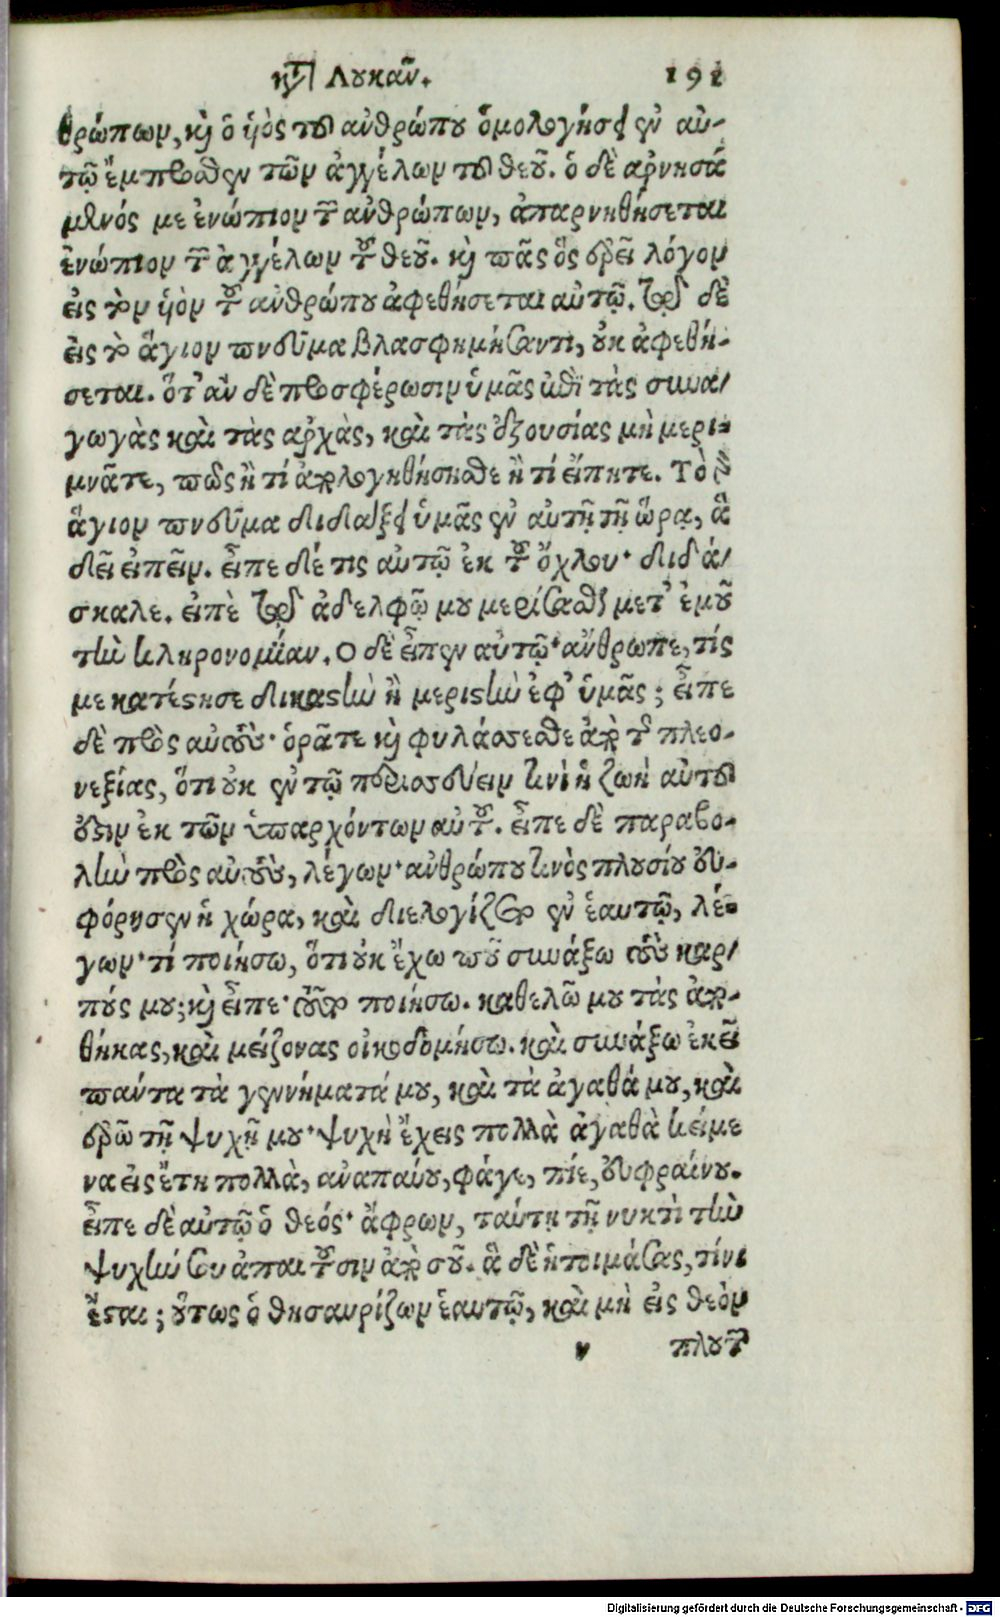 κτ̀ Λουκᾶν. 191
θρώπων, κὶ ὁ ὑὸς τοῦ ἀνθρώπου ὁμολογήσει ἐν αὐ-
τῷ ἔμπροσθεν τῶν ἀγγέλων τοῦ θεοῦ. ὁ δὲ ἀρνησά
μενός με ἐνώπιον τῶν ἀνθρώπων, ἀπαρνηθήσεται
ἐνώπιον τῶν ἀγγέλων τοῦ θεοῦ. κὶ πᾶς ὃς ἐρεῖ λόγον
εἰς τὸν ὑὸν τοῦ ἀνθρώπου ἀφεθήσεται αὐτῷ. τῷ δὲ
εἰς τὸ ἅγιον πνεῦμα βλασφημήσαντι, οὐκ ἀφεθή-
σεται. ὅτ' ἂν δὲ προσφέρωσιν ὑμᾶς ἐπὶ τὰς συνα-
γωγὰς καὶ τὰς ἀρχὰς, καὶ τὰς ἐξουσίας μὴ μερι-
μνᾶτε, πῶς ἢ τί ἀπολογηθήσησθε ἢ τί εἴπητε. Τὸ γὰρ
ἅγιον πνεῦμα διδάξει ὑμᾶς ἐν αὐτῇ τῇ ὥρᾳ, ἃ
δεῖ εἰπεῖν. εἶπε δέ τις αὐτῷ ἐκ τοῦ ὄχλου· διδά-
σκαλε. εἰπὲ τῷ ἀδελφῷ μου μερίσασθαι μετ' ἐμοῦ
τὴν κληρονομίαν. Ο δὲ εἶπεν αὐτῷ· ἄνθρωπε, τίς
με κατέστησε δικαστὴν ἢ μεριστὴν ἐφ' ὑμᾶς; εἶπε
δὲ πρὸς αὐτοὺς· ὁρᾶτε κὶ φυλάσσεσθε ἀπὸ τῆς πλεο-
νεξίας, ὅτι οὐκ ἐν τῷ περισσεύειν τινὶ ἡ ζωὴ αὐτοῦ
ἐστιν ἐκ τῶν ὑπαρχόντων αὐτοῦ. εἶπε δὲ παραβο-
λὴν πρὸς αὐτοὺς, λέγων· ἀνθρώπου τινὸς πλουσίου εὐ-
φόρησεν ἡ χώρα, καὶ διελογίζετο ἐν ἑαυτῷ, λέ-
γων· τί ποιήσω, ὅτι οὐκ ἔχω ποῦ συνάξω τοὺς καρ-
πούς μου; κὶ εἶπε· τοῦτο ποιήσω. καθελῶ μου τὰς ἀπο-
θήκας, καὶ μείζονας οἰκοδομήσω. καὶ συνάξω ἐκεῖ
πάντα τὰ γεννήματά μου, καὶ τὰ ἀγαθά μου, καὶ
ἐρῶ τῇ ψυχῇ μου· ψυχὴ ἔχεις πολλὰ ἀγαθὰ κείμε
να εἰς ἔτη πολλὰ, ἀναπαύου, φάγε, πίε, εὐφραίνου.
εἶπε δὲ αὐτῷ ὁ θεός· ἄφρων, ταύτῃ τῇ νυκτὶ τὴν
ψυχήν σου ἀπαιτοῦσιν ἀπὸ σοῦ. ἃ δὲ ἡτοίμασας, τίνι
ἔσται; οὕτως ὁ θησαυρίζων ἑαυτῷ, καὶ μὴ εἰς θεὸν
v πλουτῶν